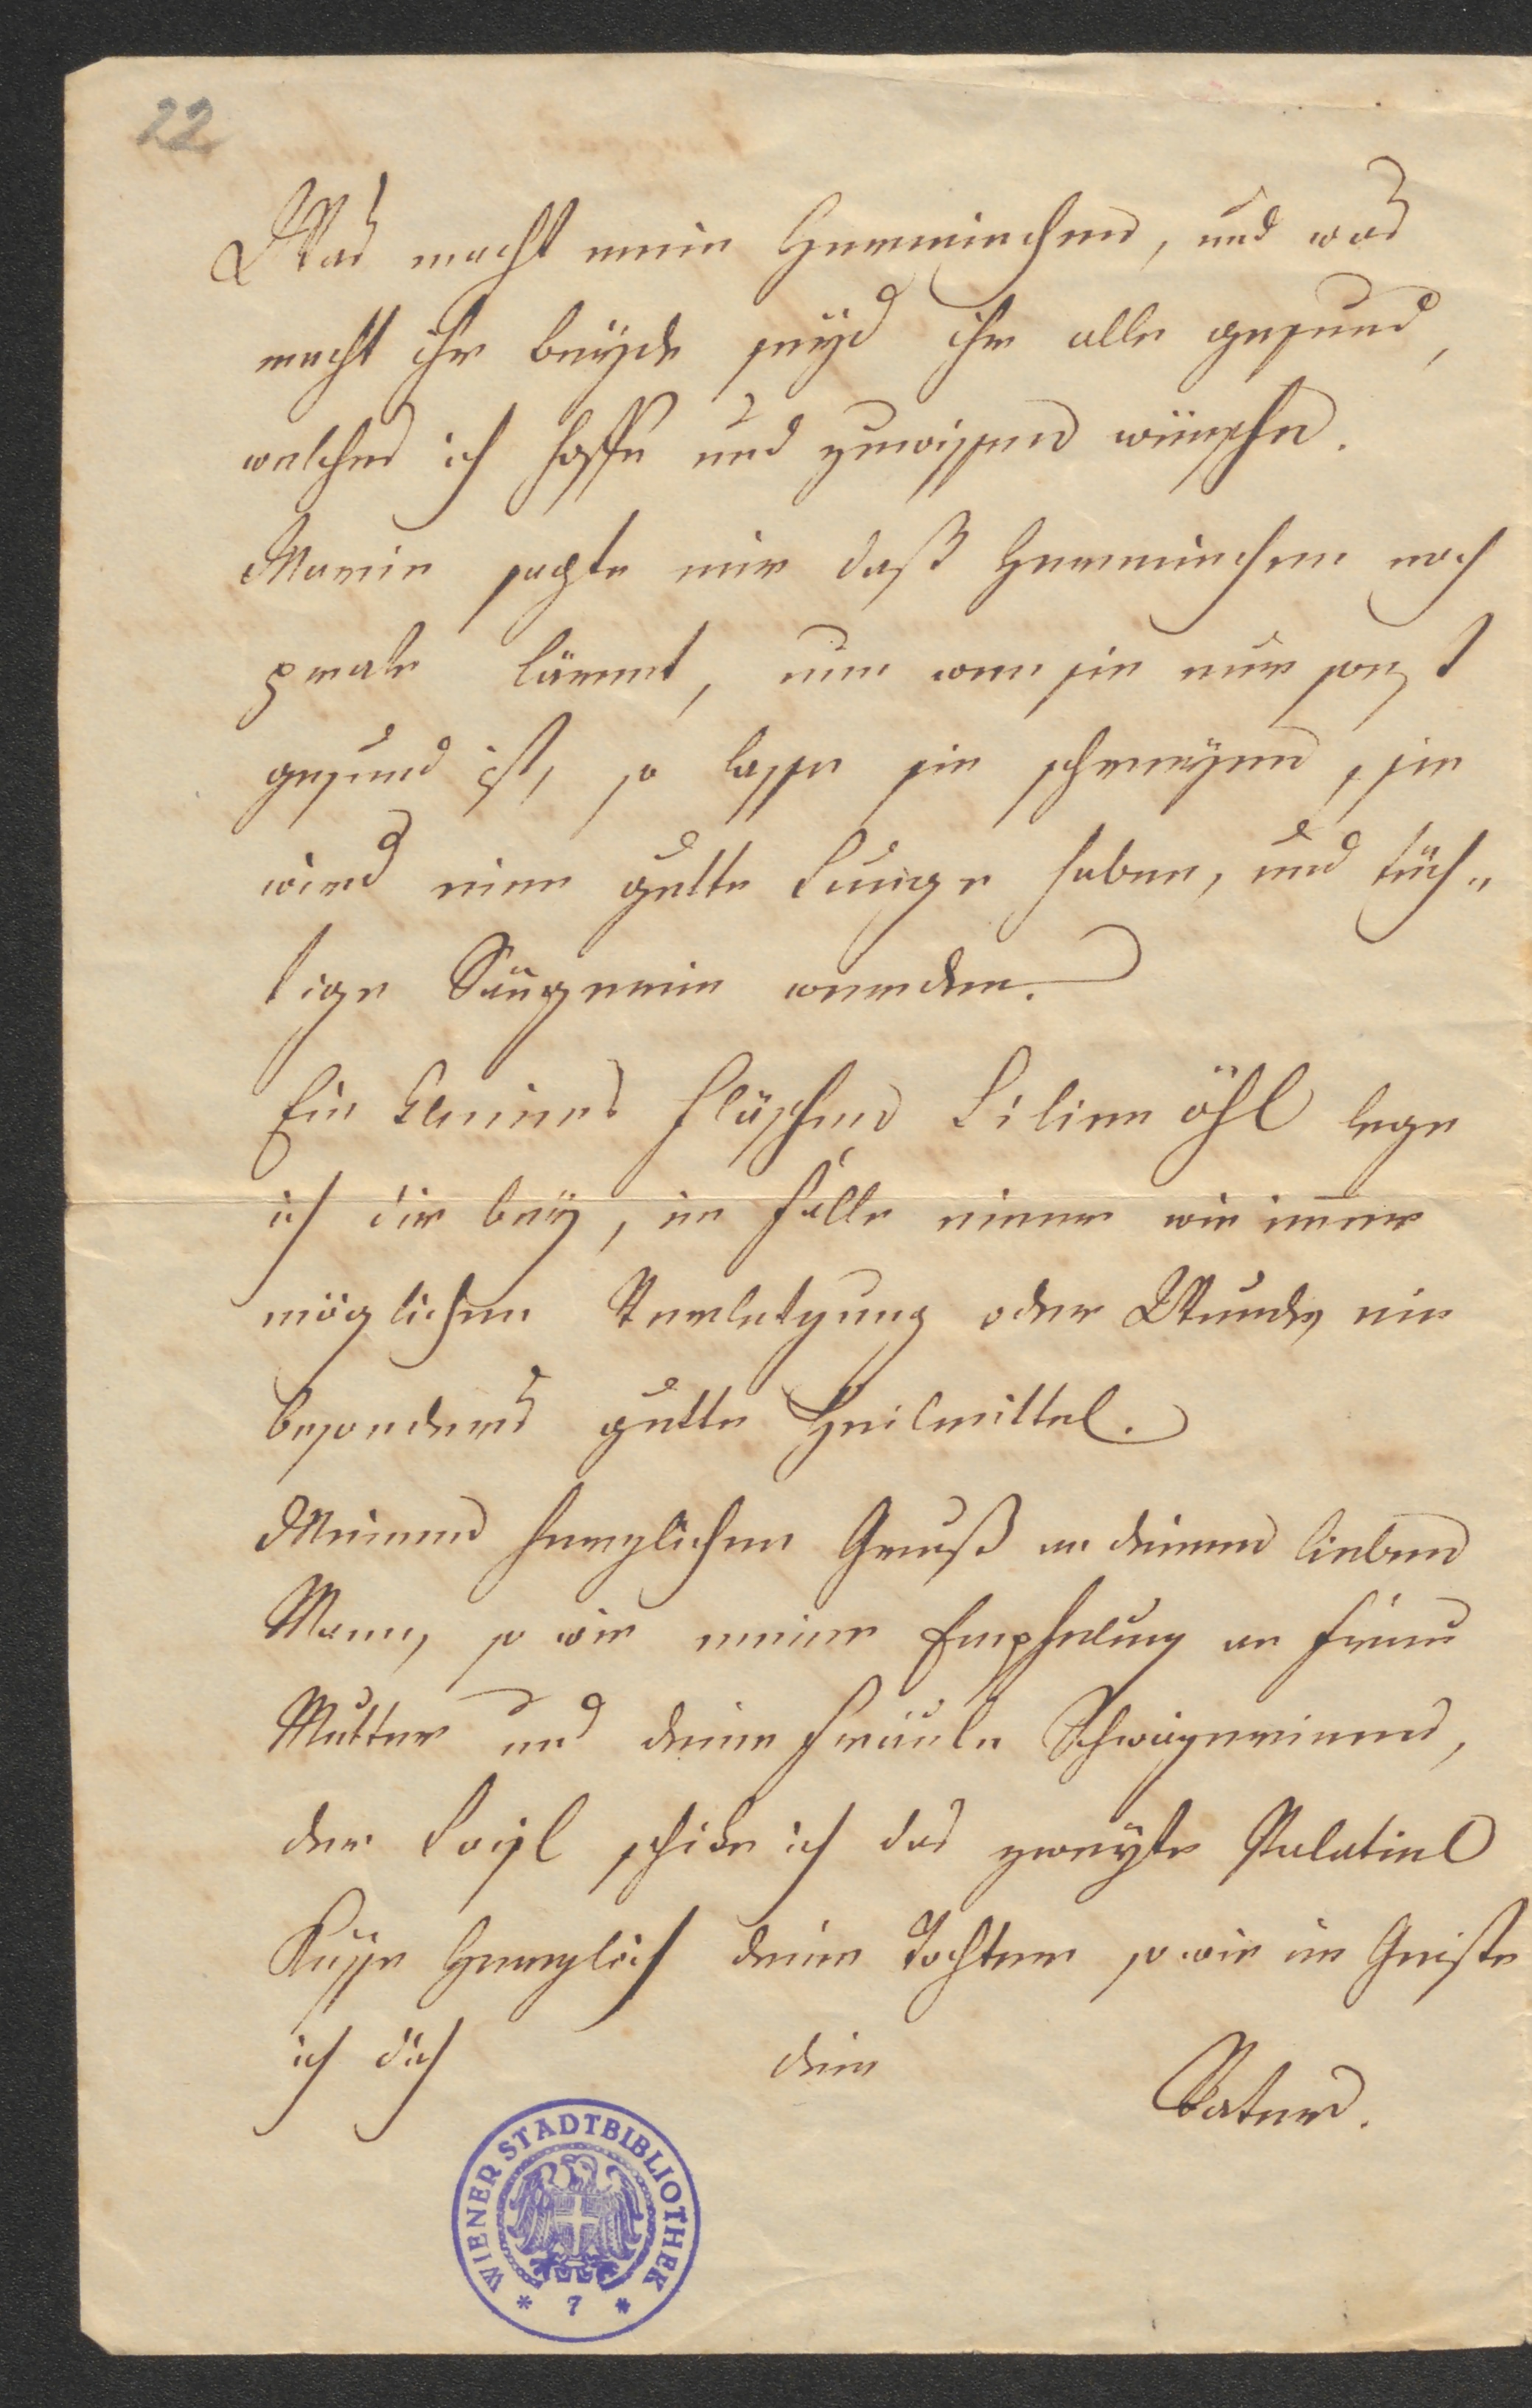 22
Was macht mein Herminchen, und was
macht ihr beyde seyd ihr alle gesund,
welches ich hoffe und zuwissen wünsche.
Marie sagte mir daß Herminchen noch
lärmt, nun wen sie nur sonst
gesund ist, so lasse sie schreyen, sie
wird eine gutte Lunge haben, und tüch„
tige Sängerin werden.
Ein kleines Fläschen Lilien öhl lege
ich dir bey, im Falle einer wie im̅er
möglichen Verletzung oder Wunde, ein
besonders gutte Heilmittel.
Meinen herzlichen Gruß an deinen lieben
Mann, so wie meine Empfhelung an Frau
Mutter und deine Fräule Schwägerinen,
der schike ich das zweyte Palatinl
Küsse Herzlich deine Tochter so wie im Geiste
ich dich dein
Vater.
WIENER STADTBIBLIOTHEK
* 7 *